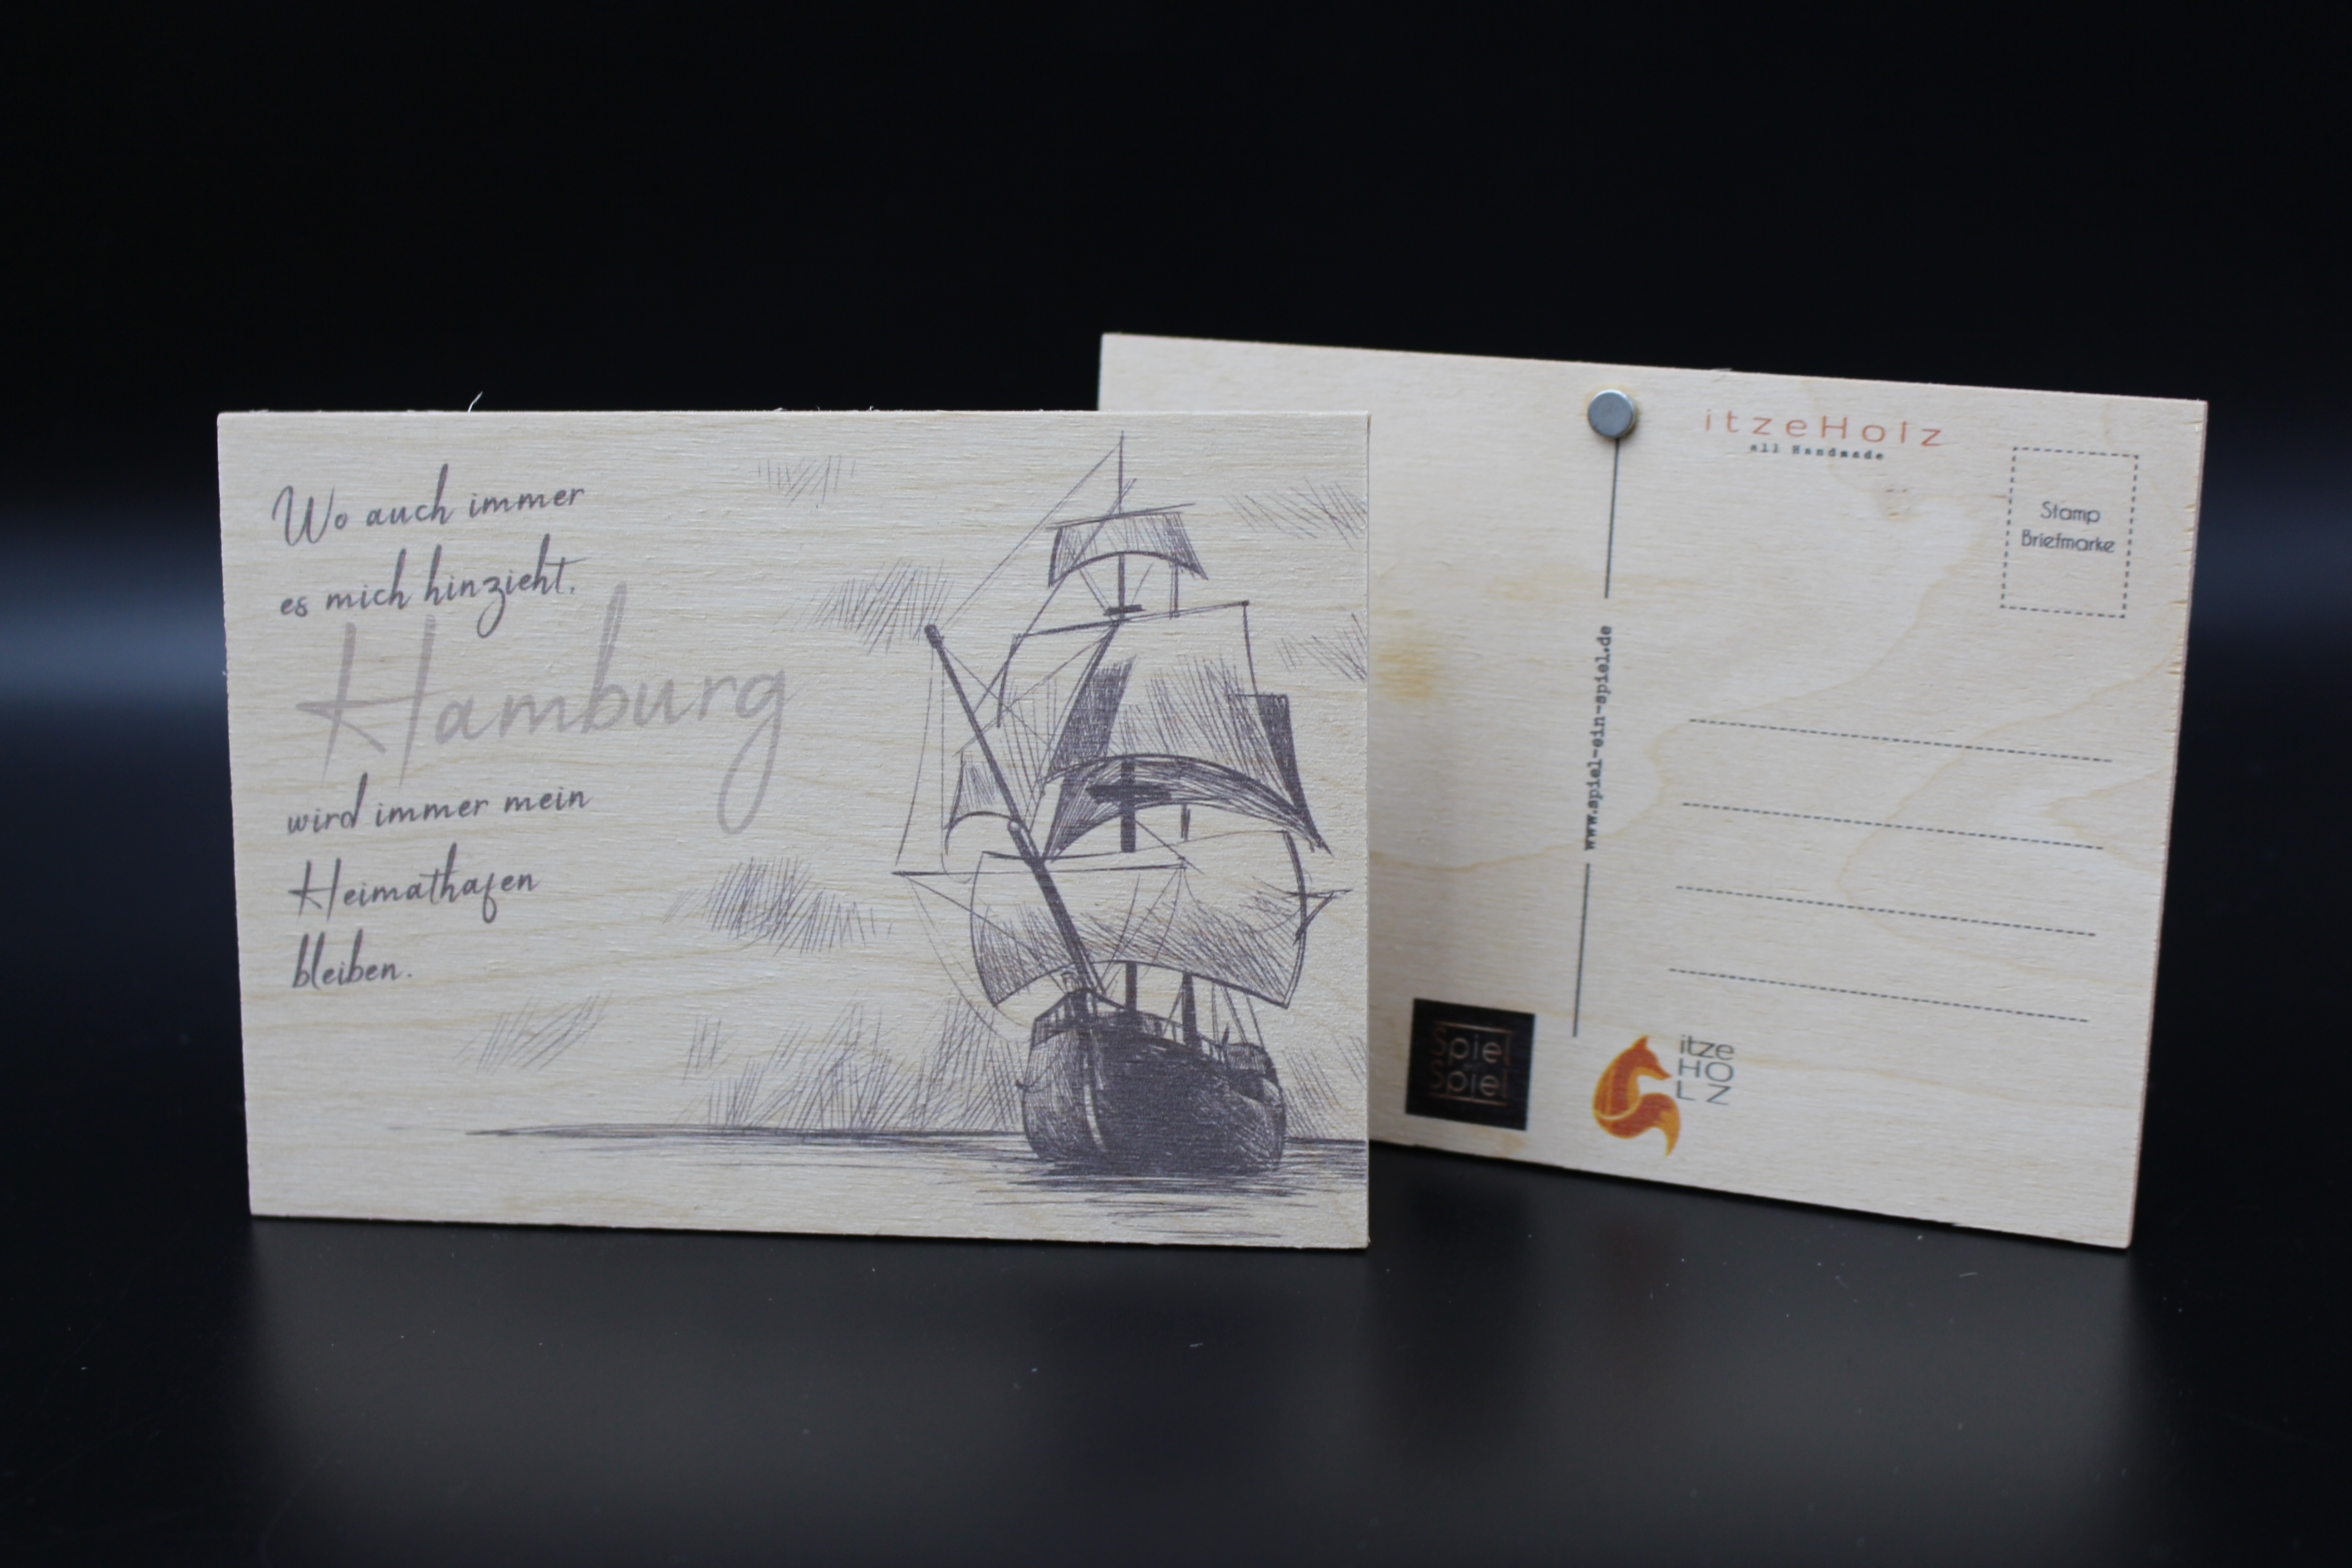 Wo auch immer
es mich hinzieht,
Hamburg
wird immer mein
Heimathafen
bleiben.
itzeHolz
all Handmade
Stamp
Briefmarke
www.spiel-ein-spiel.de
Spiel
Spiel
itze
HO
LZ